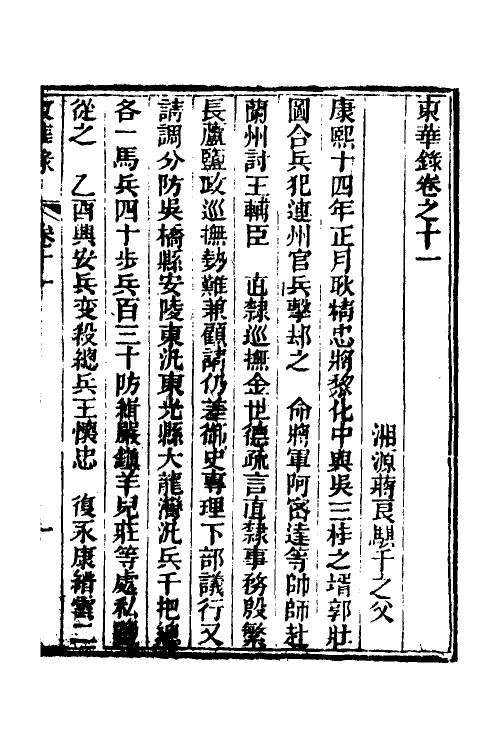 東華錄卷之十一
湘源蔣良騏千之父
康熙十四年正月耿精忠將黎化中與吳三桂之壻郭壯
圖合兵犯連州官兵擊却之　命將軍阿密達等帥師赴
蘭州討王輔臣　直隸巡撫金世德疏言直隸事務殷繁
長蘆鹽政巡撫勢難兼顧請仍差御史專理下部議行又
請調分防吳橋縣安陵東汛東光縣大龍灣汛兵千把總
各一馬兵四十步兵百三十防緝嚴鎮羊兒莊等處私鹽
從之　乙酉興安兵变殺總兵王懷忠　復永康縉雲二
東華錄　卷十一　一